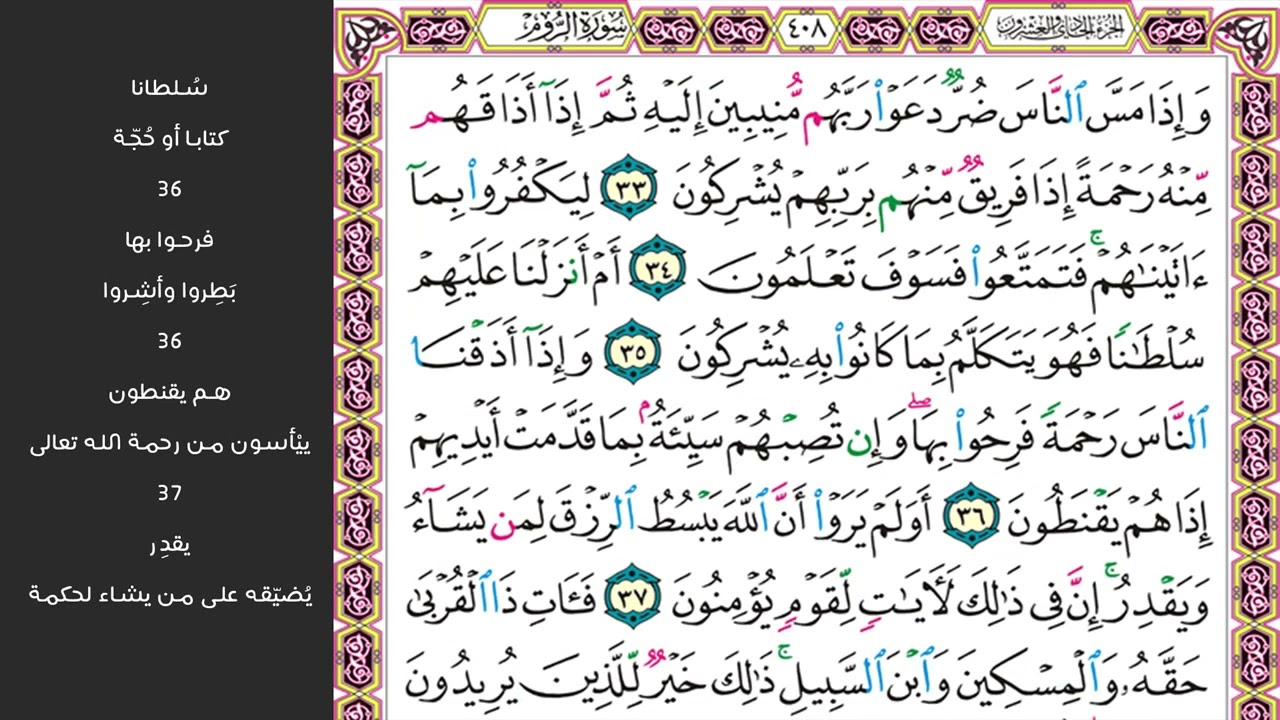 سُورَةُ الرُّومِ
٤٠٨
الجزء الحادي والعشرون
وَإِذَا مَسَّ ٱلنَّاسَ ضُرٌّ دَعَوْا۟ رَبَّهُم مُّنِيبِينَ إِلَيْهِ ثُمَّ إِذَآ أَذَاقَهُم
مِّنْهُ رَحْمَةً إِذَا فَرِيقٌ مِّنْهُم بِرَبِّهِمْ يُشْرِكُونَ ٣٣ لِيَكْفُرُوا۟ بِمَآ
ءَاتَيْنَٰهُمْ ۚ فَتَمَتَّعُوا۟ فَسَوْفَ تَعْلَمُونَ ٣٤ أَمْ أَنزَلْنَا عَلَيْهِمْ
سُلْطَٰنًا فَهُوَ يَتَكَلَّمُ بِمَا كَانُوا۟ بِهِۦ يُشْرِكُونَ ٣٥ وَإِذَآ أَذَقْنَا
ٱلنَّاسَ رَحْمَةً فَرِحُوا۟ بِهَا ۖ وَإِن تُصِبْهُمْ سَيِّئَةٌۢ بِمَا قَدَّمَتْ أَيْدِيهِمْ
إِذَا هُمْ يَقْنَطُونَ ٣٦ أَوَلَمْ يَرَوْا۟ أَنَّ ٱللَّهَ يَبْسُطُ ٱلرِّزْقَ لِمَن يَشَآءُ
وَيَقْدِرُ ۚ إِنَّ فِى ذَٰلِكَ لَءَايَٰتٍ لِّقَوْمٍ يُؤْمِنُونَ ٣٧ فَـَٔاتِ ذَا ٱلْقُرْبَىٰ
حَقَّهُۥ وَٱلْمِسْكِينَ وَٱبْنَ ٱلسَّبِيلِ ۚ ذَٰلِكَ خَيْرٌ لِّلَّذِينَ يُرِيدُونَ
سُلطانا
كتابا أو حُجّة
36
فرحوا بها
بَطِروا وأشِروا
36
هم يقنطون
ييْأسون من رحمة الله تعالى
37
يقدِر
يُضيّقه على من يشاء لحكمة